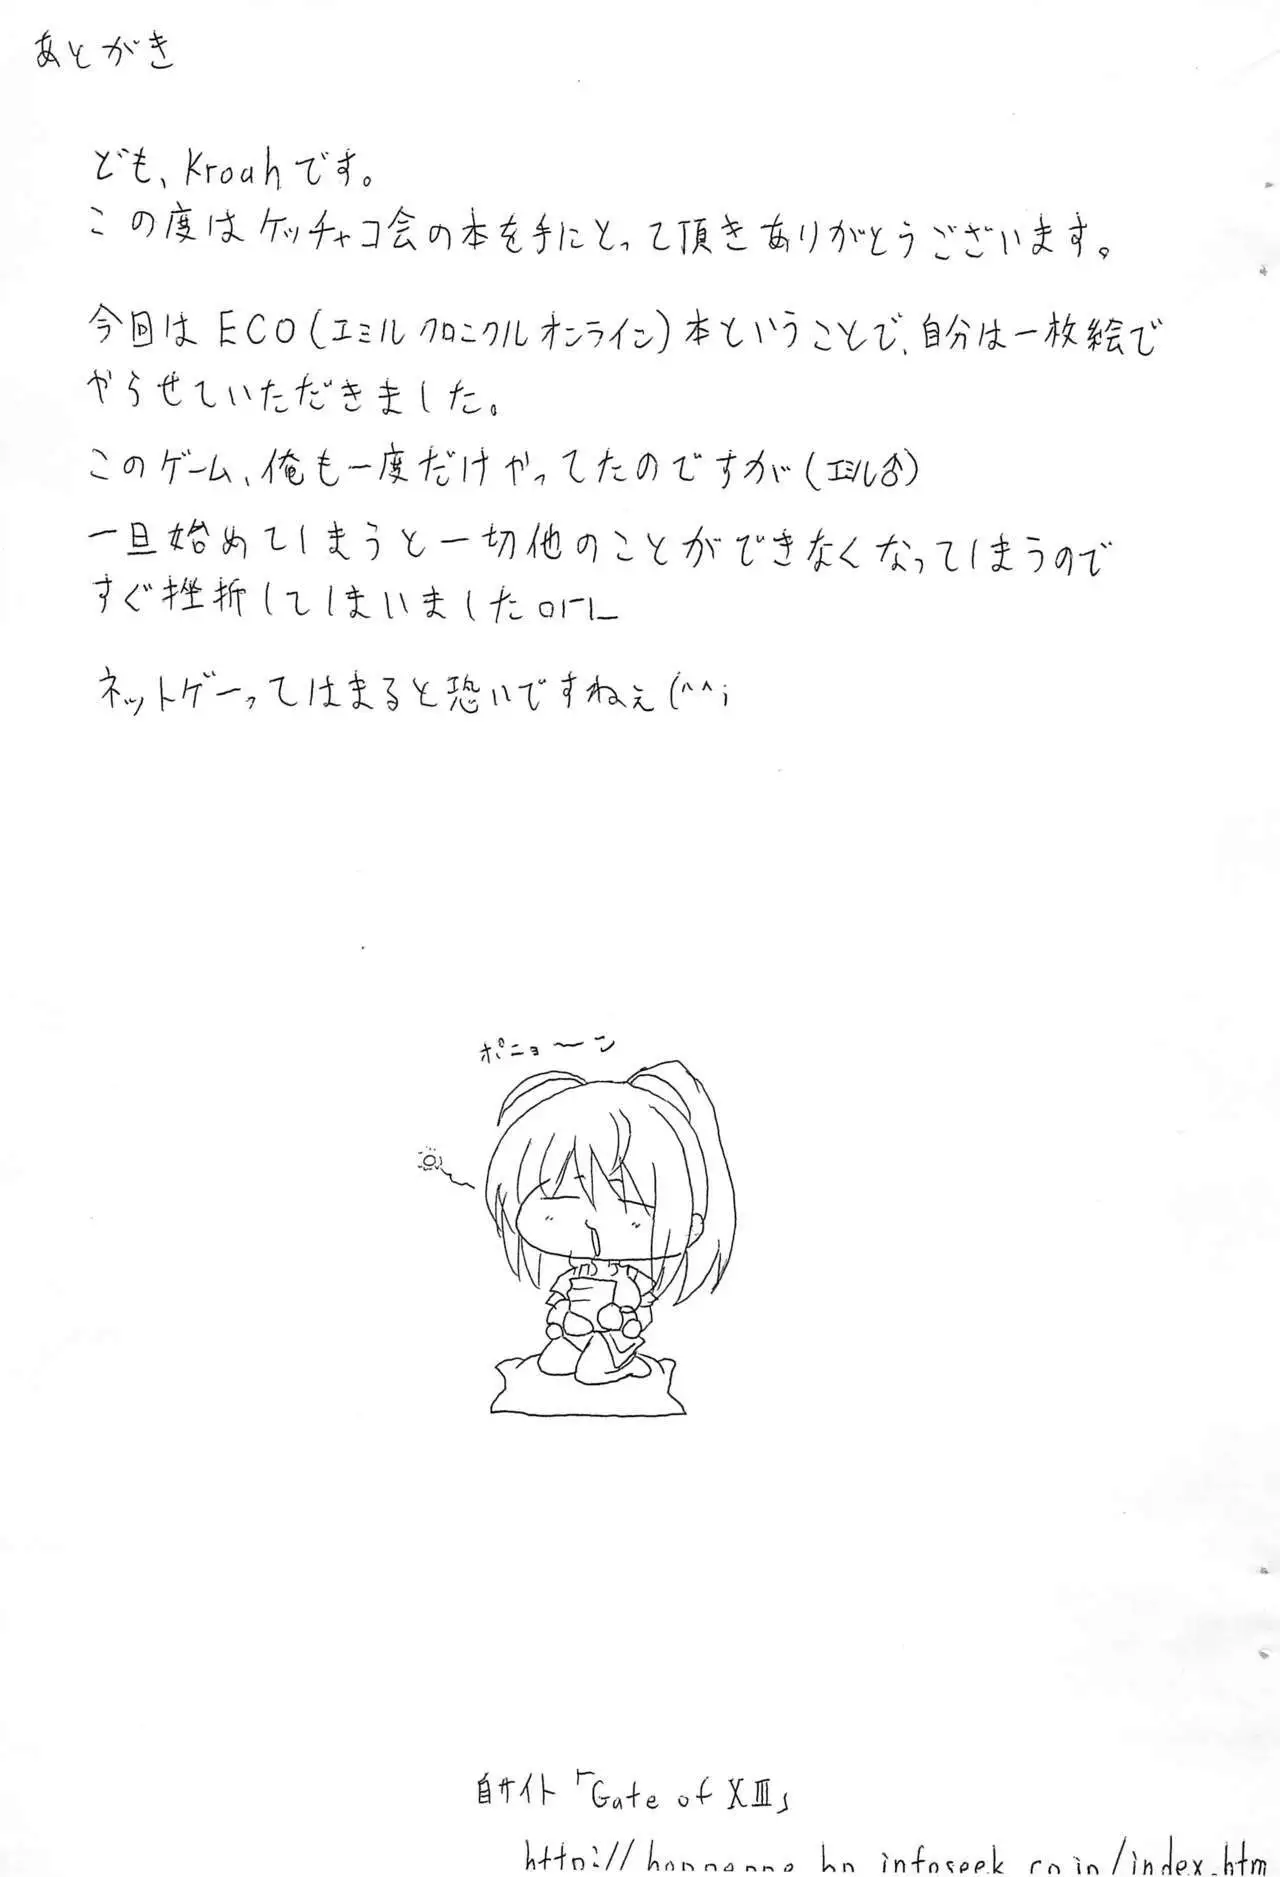 あとがき
ども、Kroahです。
この度はケッチャコ会の本を手にとって頂きありがとうございます。
今回はECO(エミルクロニクルオンライン)本ということで、自分は一枚絵で
やらせていただきました。
このゲーム、俺も一度だけやってたのですが(エミル♂)
一旦始めてしまうと一切他のことができなくなってしまうので
すぐ挫折してしまいましたorL
ネットゲーってはまると恐いですねぇ(^^;
ポニョ〜ン
自サイト「Gate of XIII」
http:// infoseek co.jp/index.htm